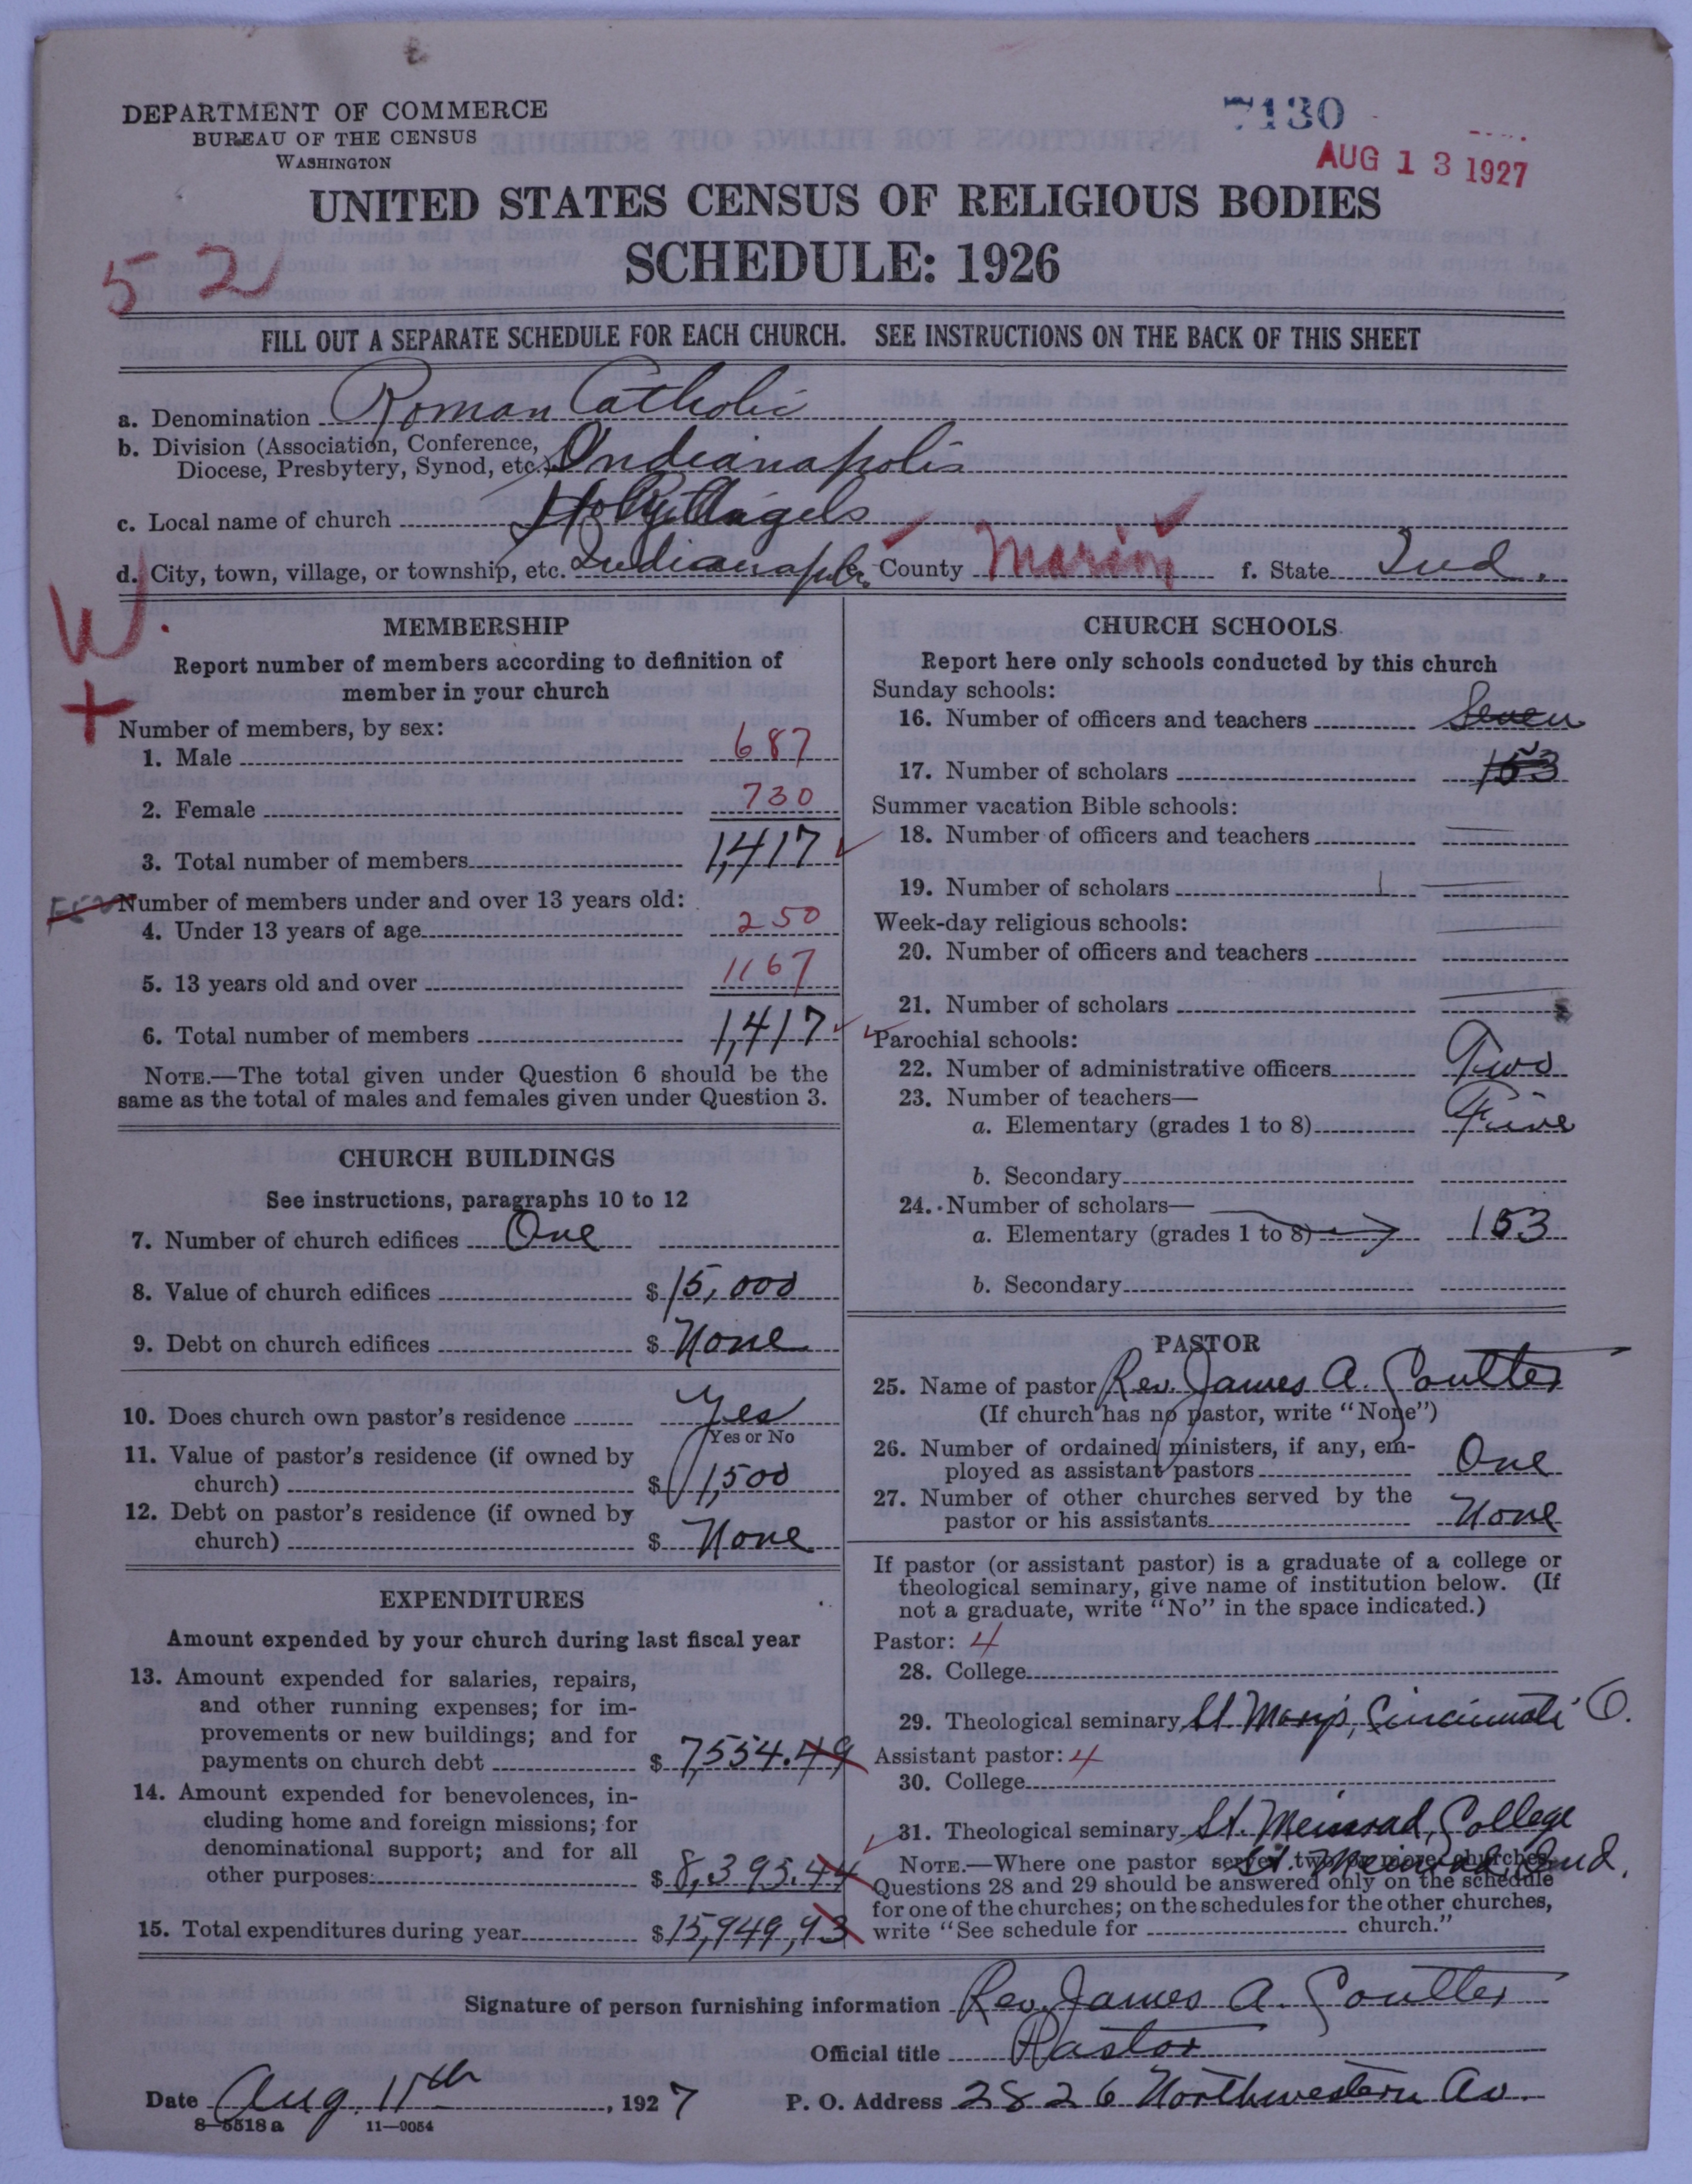 DEPARTMENT OF COMMERCE
BUREAU OF THE CENSUS
WASHINGTON
7130
AUG 13 1927
UNITED STATES CENSUS OF RELIGIOUS BODIES
SCHEDULE: 1926
52
FILL OUT A SEPARATE SCHEDULE FOR EACH CHURCH. SEE INSTRUCTIONS ON THE BACK OF THIS SHEET
a. Denomination Roman Catholic
b. Division (Association, Conference,
Diocese, Presbytery, Synod, etc.) Indianapolis
c. Local name of church Holy Angels
d. City, town, village, or township, etc. Indianapolis e. County Marion f. State Ind.
W.
+
MEMBERSHIP
Report number of members according to definition of
member in your church
Number of members, by sex:
1. Male 687
2. Female 730
3. Total number of members 1,417
Number of members under and over 13 years old:
4. Under 13 years of age 250
5. 13 years old and over 1167
6. Total number of members 1,417
NOTE.—The total given under Question 6 should be the
same as the total of males and females given under Question 3.
CHURCH BUILDINGS
See instructions, paragraphs 10 to 12
7. Number of church edifices One
8. Value of church edifices $ 15,000
9. Debt on church edifices $ None
10. Does church own pastor's residence Yes
Yes or No
11. Value of pastor's residence (if owned by
church) $ 1,500
12. Debt on pastor's residence (if owned by
church) $ None
EXPENDITURES
Amount expended by your church during last fiscal year
13. Amount expended for salaries, repairs,
and other running expenses; for im-
provements or new buildings; and for
payments on church debt $ 7,554.49
14. Amount expended for benevolences, in-
cluding home and foreign missions; for
denominational support; and for all
other purposes: $ 8,395.44
15. Total expenditures during year $ 15,949,93
CHURCH SCHOOLS
Report here only schools conducted by this church
Sunday schools:
16. Number of officers and teachers Seven
17. Number of scholars 153
Summer vacation Bible schools:
18. Number of officers and teachers
19. Number of scholars
Week-day religious schools:
20. Number of officers and teachers
21. Number of scholars
Parochial schools:
22. Number of administrative officers Two
23. Number of teachers—
a. Elementary (grades 1 to 8) Five
b. Secondary
24. Number of scholars—
a. Elementary (grades 1 to 8) 153
b. Secondary
PASTOR
25. Name of pastor Rev. James A. Coulter
(If church has no pastor, write "None")
26. Number of ordained ministers, if any, em-
ployed as assistant pastors One
27. Number of other churches served by the
pastor or his assistants None
If pastor (or assistant pastor) is a graduate of a college or
theological seminary, give name of institution below. (If
not a graduate, write "No" in the space indicated.)
Pastor: 4
28. College
29. Theological seminary St. Mary's, Cincinnati O.
Assistant pastor: 4
30. College
31. Theological seminary St. Meinrad College
St. Meinrad, Ind.
NOTE.—Where one pastor serves two or more churches,
Questions 28 and 29 should be answered only on the schedule
for one of the churches; on the schedules for the other churches,
write "See schedule for church."
Signature of person furnishing information Rev. James A. Coulter
Official title Pastor
Date Aug. 11th, 1927 P. O. Address 2826 Northwestern Av.
8—5518a 11—9054